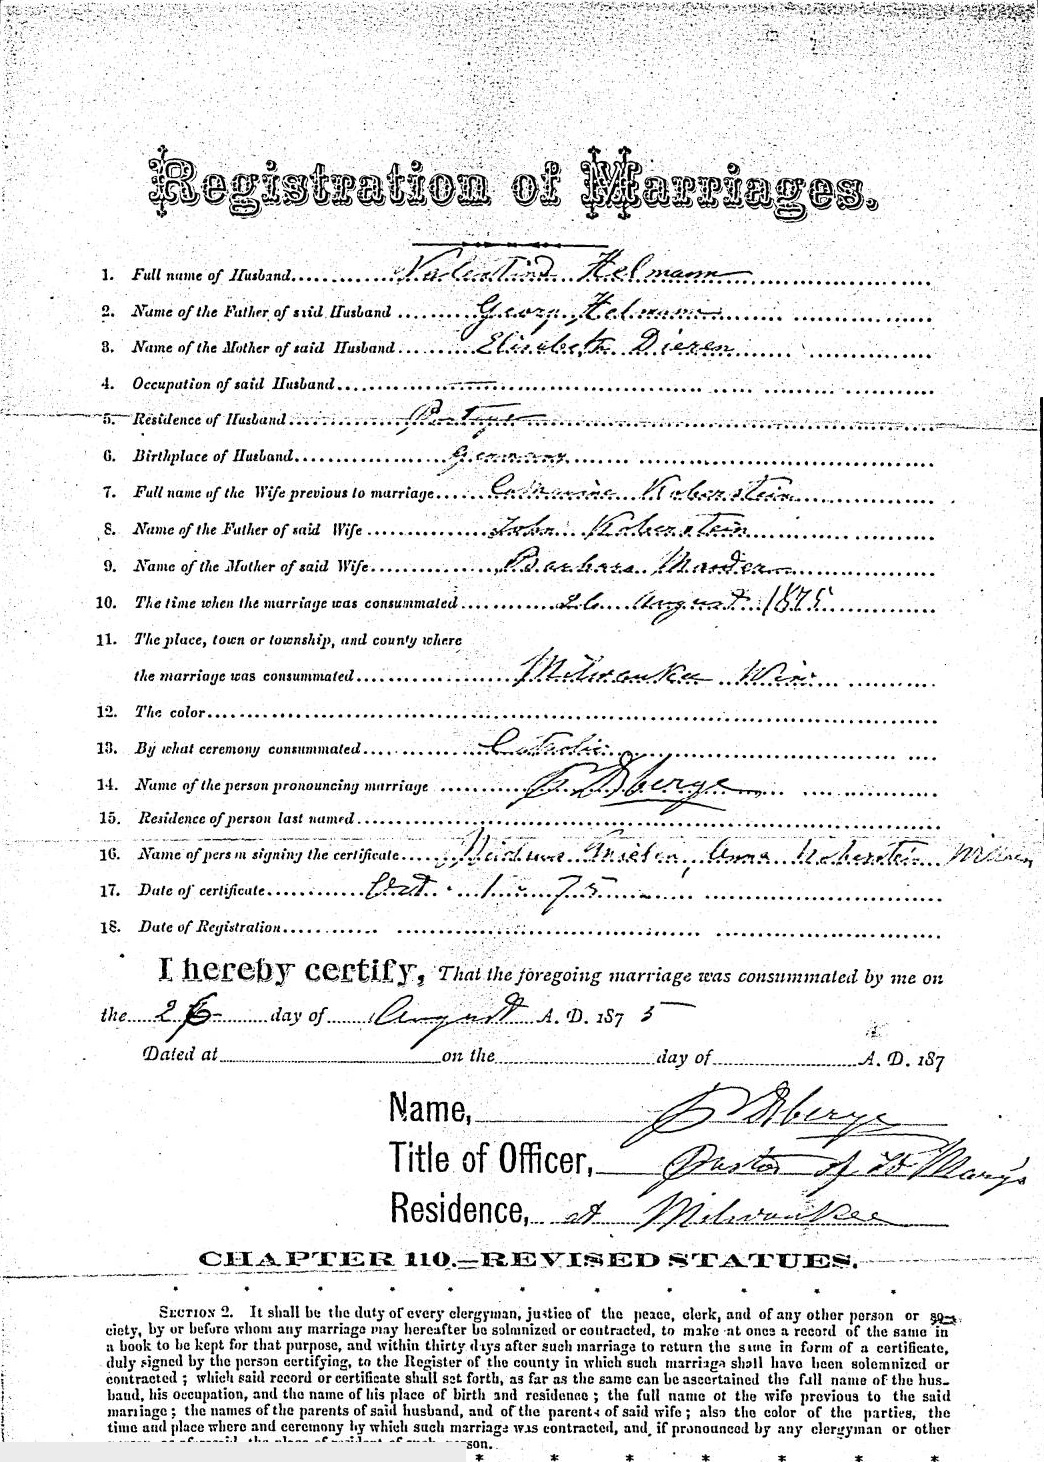 Registration of Marriages.
1. Full name of Husband Valentine Helmann
2. Name of the Father of said Husband Georg Helmann
3. Name of the Mother of said Husband Elisabeth Dieren
4. Occupation of said Husband
5. Residence of Husband Portage
6. Birthplace of Husband Germany
7. Full name of the Wife previous to marriage Catharine Koberstein
8. Name of the Father of said Wife John Koberstein
9. Name of the Mother of said Wife Barbara
10. The time when the marriage was consummated 26 August 1875
11. The place, town or township, and county where
the marriage was consummated Milwaukee Wis.
12. The color
13. By what ceremony consummated Catholic
14. Name of the person pronouncing marriage
15. Residence of person last named
16. Name of person signing the certificate Anna Koberstein
17. Date of certificate Oct. 1. 75
18. Date of Registration
I hereby certify, That the foregoing marriage was consummated by me on
the 26 day of August A. D. 187 5
Dated at on the day of A. D. 187
Name,
Title of Officer, Pastor of St Mary's
Residence, at Milwaukee
CHAPTER 110.—REVISED STATUES.
* * * * * * * * * * *
SECTION 2. It shall be the duty of every clergyman, justice of the peace, clerk, and of any other person or so-
ciety, by or before whom any marriage may hereafter be solmnized or contracted, to make at once a record of the same in
a book to be kept for that purpose, and within thirty days after such marriage to return the same in form of a certificate,
duly signed by the person certifying, to the Register of the county in which such marriage shall have been solemnized or
contracted ; which said record or certificate shall set forth, as far as the same can be ascertained the full name of the hus-
band, his occupation, and the name of his place of birth and residence ; the full name of the wife previous to the said
marriage ; the names of the parents of said husband, and of the parents of said wife ; also the color of the parties, the
time and place where and ceremony by which such marriage was contracted, and if pronounced by any clergyman or other
person.
* * * * * * *